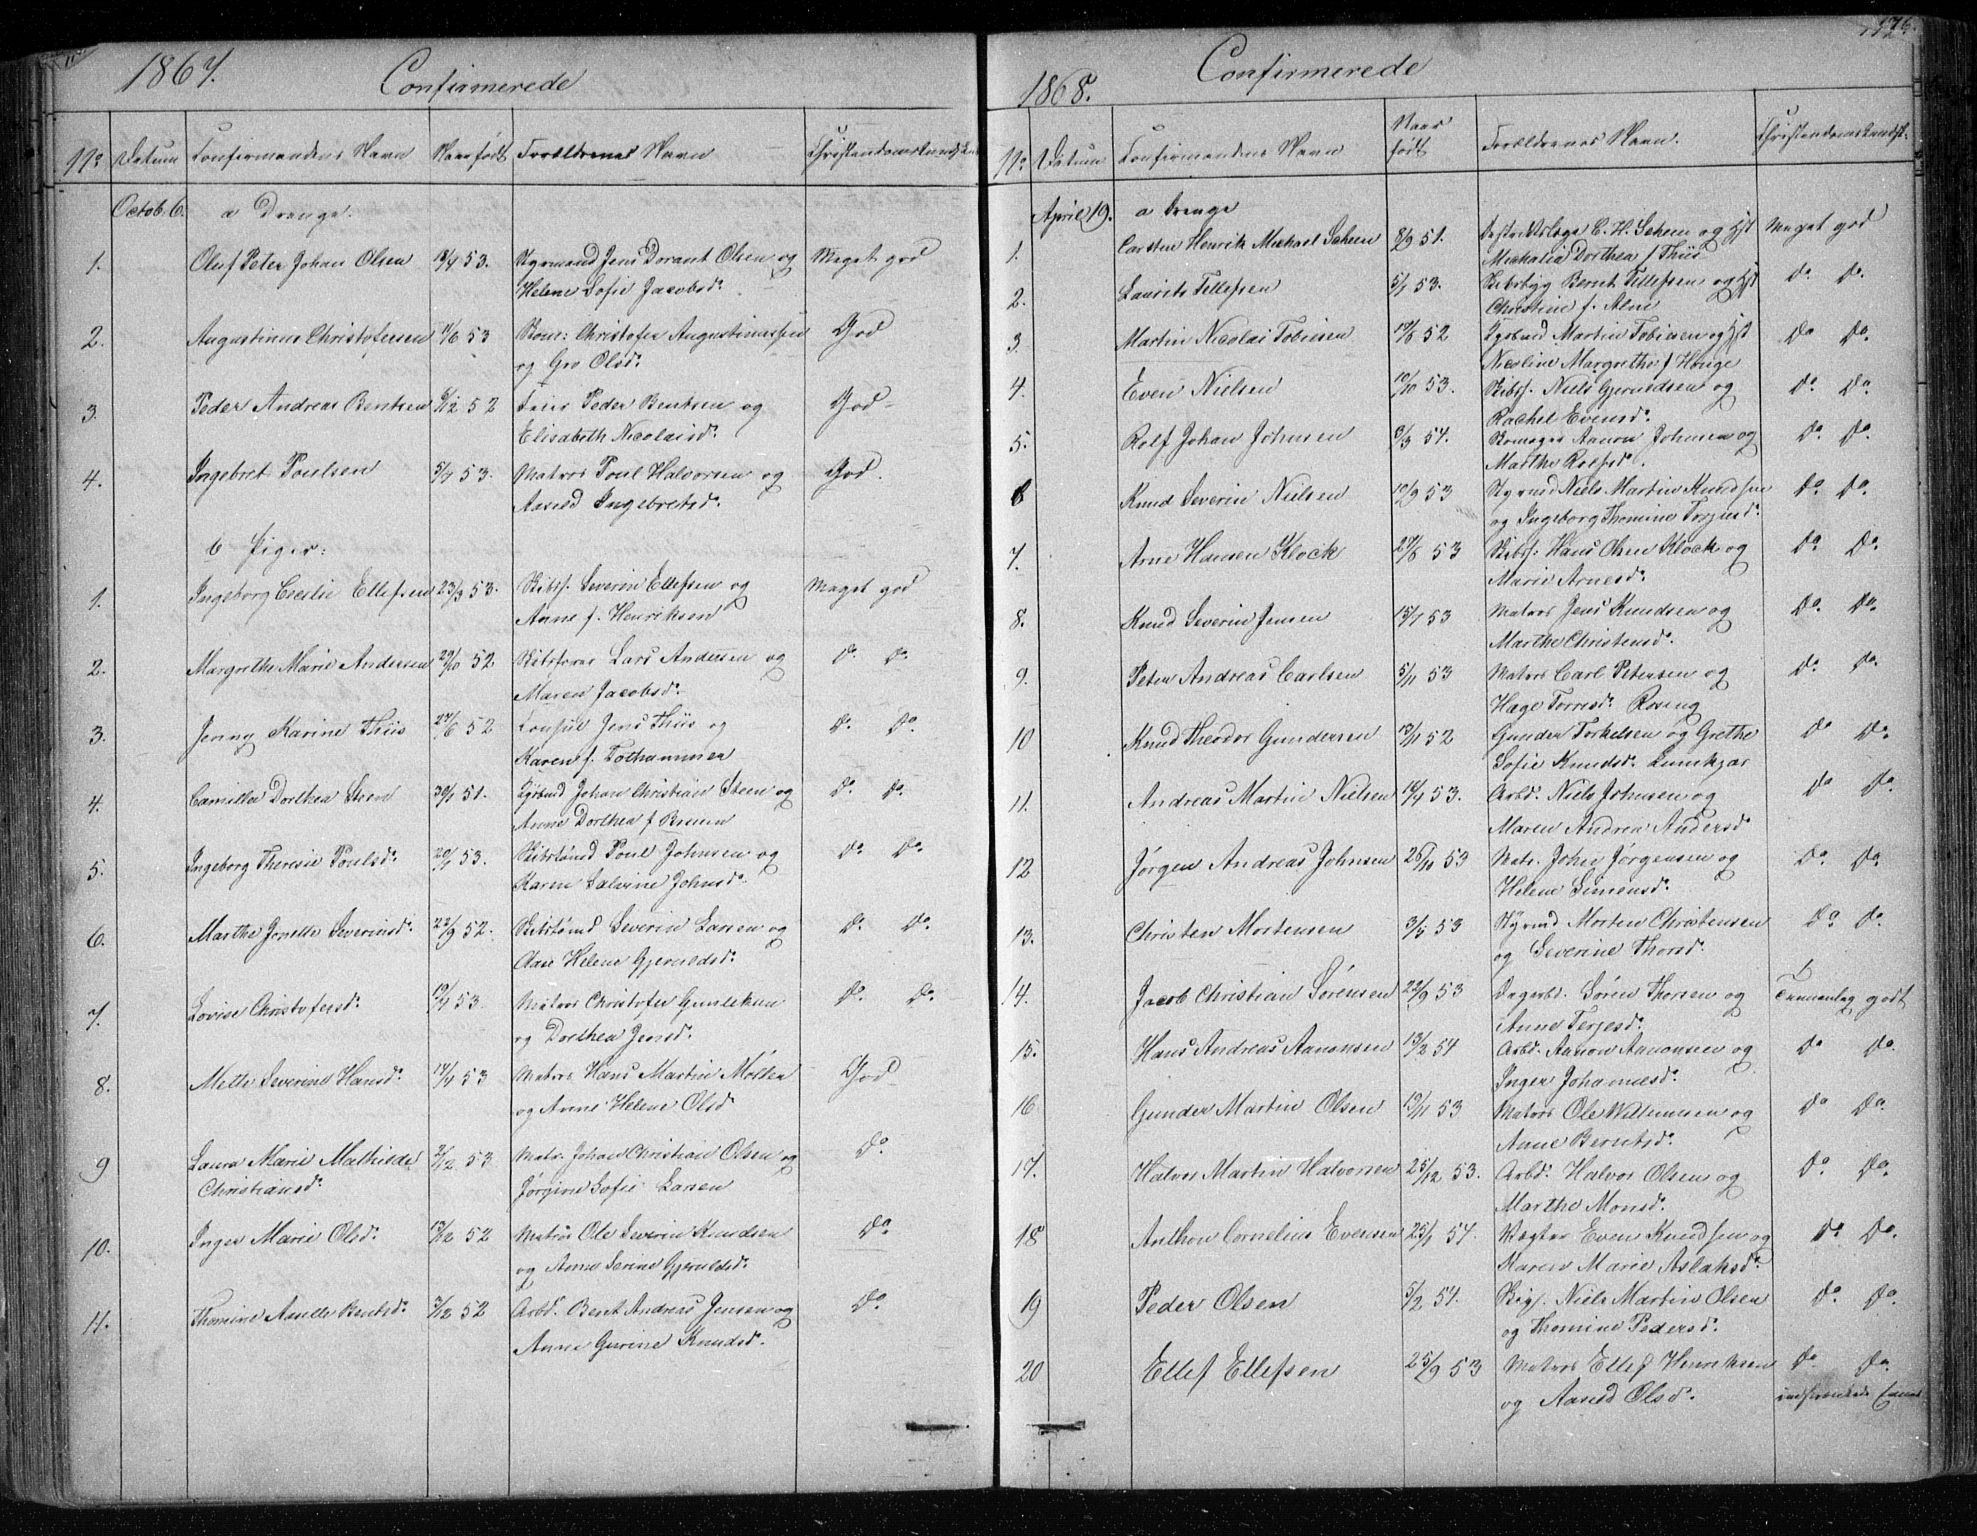 1867.
Confirmerede
No Datum Confirmandens Navn Naar født Forældrenes Navn Christendomskundsk.
Octob. 6. a Drenge.
1. Oluf Peter Johan Olsen 53. Styrmand Jens Dorant Olsen og Maget god
Helene Sofie Jacobsd.
2. Augustinus Christofersen 11/6 53 Christofer Augustinussen God
og Gro Olsd.
3. Peder Andreas Bentsen 6/12 52 Peder Bentsen og God
Elisabeth Nicolaisd.
4. Ingebret Poulsen 5/7 53. Matros Poul Halvorsen og God.
Aasild Ingebretsd.
b Piger:
1. Ingeborg Cecilie Ellefsen 23/3 53. Skibsf. Severin Ellefsen og Maget god
Anne f. Henriksen
2. Margrethe Marie Andersen 29/10 52. Lars Andersen og Do. Do.
Maren Jacobsd.
3. Jenny Karine Thiis 27/6 52 Consul Jens Thiis og Do. Do.
Karen f. Folkammer
4. Camilla Dorthea Steen 30/1 51. Johan Christian Steen og Do. Do.
Anne Dorthea f
5. Ingeborg Theresie Poulsd. 20/7 53. Skibstømd Poul Johnsen og Do. Do.
Karen Salvine Johnsd.
6. Marthe Jonette Severinsd. 22/9 52. Skibstømd Severin Larsen og Do. Do.
Aase Helene Gjeruldsd.
7. Lovise Christofersd. 53. Matros Christofer Gunleksen Do. Do.
og Dorthea Jensd.
8. Mette Severine Hansd. 14/4 53 Matros Hans Martin Möller God
og Anne Helene Olsd
9 Laura Marie Mathilde 2/2 53 Matr. Johan Christian Olsen og Do
Christiansd. Jörgine Sofie Larsen
10. Inger Marie Olsd. 13/12 52 Matros Ole Severin Knudsen Do
og Anne Serine Gjeruldsd.
11. Thomine Amalie Bentsd. 3/12 52 Arbd. Bent Andreas Jensen og Do
Anne Gurine Knudsd.
176.
1868. Confirmerede
No. Datum Confirmandens Navn Naar født Forældrenes Navn. Christendomskundsk.
April 19. a Drenge
1. Carsten Henrik Michael Scheen 8/9 51. Distriktslæge C. H. Scheen og Hst Maget god
Michalia Dorthea f Thiis
2. Laurits Tellefsen 5/1 53. Skibsbyg Bernt Tellefsen og Hst Do. Do.
Christine f. Alen
3. Martin Nicolai Tobiesen 19/6 52 Martin Tobiesen og Hst Do Do.
Nicoline Margrethe f Houge
4. Even Nielsen 10/10 53. Skibsf. Niels Gjeruldsen og Do. Do.
Rachel Evensd.
5. Rolf Johan Johnsen 6/3 54. Aanon Johnsen og Do. Do.
Marthe Rolfsd.
6 Knud Severin Nielsen 12/9 53 Styrmd Niels Martin Knudsen Do. Do.
og Ingeborg Thomine Terjesd.
7. Arne Hansen Klock 27/6 53 Skibsf. Hans Olsen Klock og Do. Do.
Marie Arnesd.
8. Knud Severin Jensen 15/7 53 Matros Jens Knudsen og Do. Do.
Marthe Christensd.
9. Peter Andreas Carlsen 5/11 53 Matros Carl Petersen og Do. Do.
Hæge Torresd. Roseng
10 Knud Theodor Gundersen 13/11 52 Gunder Torkelsen og Grethe Do Do.
Sofie Knudsd. Lunkjær
11. Andreas Martin Nielsen 53. Arbd. Niels Johnsen og Do Do.
Maren Andrea Andersd
12 Jørgen Andreas Johnsen 26/10 53 Matr. John Jørgensen og Do. Do.
Helene Simensd.
13. Christen Mortensen 3/5 53 Styrmd Morten Christensen Do. Do.
og Severine Thorsd.
14. Jacob Christian Sørensen 22/9 53 Dagarbd. Søren Thorsen og Temmelig godt
Anne Terjesd.
15. Hans Andreas Aanonsen 13/2 54 Arbd. Aanon Aanonsen og Do Do.
Inger Johannesd.
16 Gunder Martin Olsen 13/11 53 Matros Ole Willumsen og Do Do.
Anne Berntsd.
17. Halvor Martin Halvorsen 25/12 53. Arbd. Halvor Olsen og Do. Do.
Marthe Monsd.
18 Anthon Cornelius Evensen 25/1 54. Vægter Even Knudsen og Do Do.
Karen Marie Aslaksd.
19 Peder Olsen 5/2 54. Niels Martin Olsen Do. Do.
og Thomine Pedersd.
20 Ellef Ellefsen 25/9 53 Matros Ellef Henriksen Do. Do.
og Aasild Olsd.